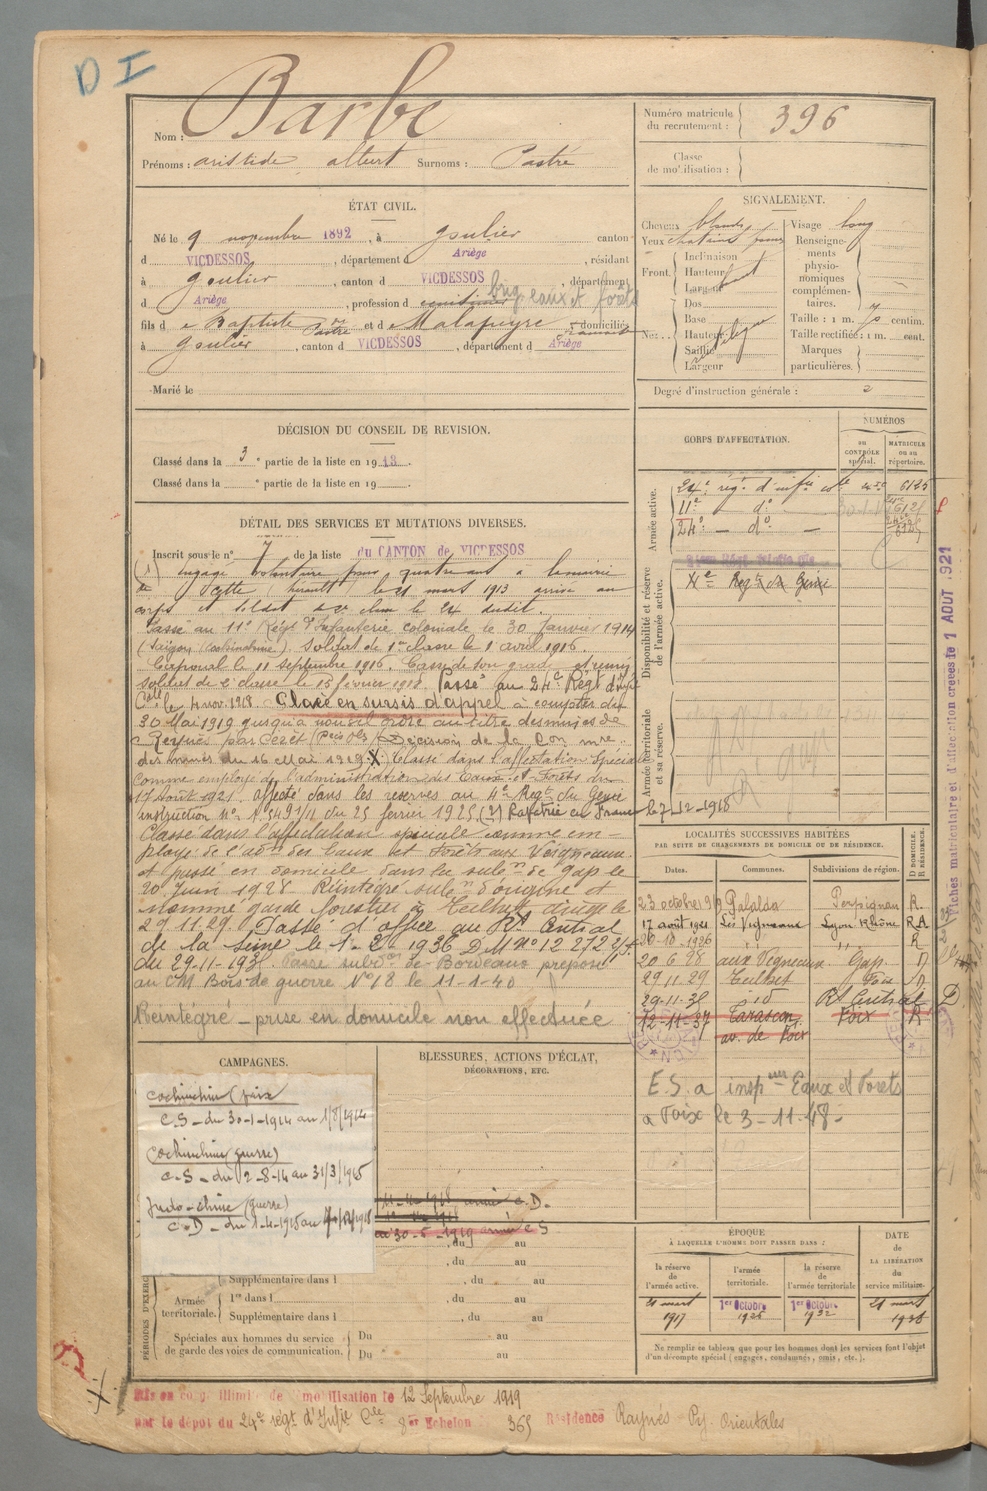 D I
Nom : Barbe
Prénoms : aristide albert Surnoms : Pastré
Numéro matricule du recrutement : 396
Classe de mobilisation :
ÉTAT CIVIL.
Né le 9 novembre 1892, à Goulier canton
d VICDESSOS, département d Ariège, résidant
à Goulier, canton d VICDESSOS, département
d Ariège, profession d brig. eaux et forêts
fils de Baptiste et de Malapeyre domiciliés
à Goulier, canton d VICDESSOS, département d Ariège
Marié le
SIGNALEMENT.
Cheveux blonds
Yeux
Front. Inclinaison
Hauteur
Largeur
Nez . . Dos
Base
Hauteur
Saillie
Largeur
Visage long
Renseignements physionomiques complémentaires.
Taille : 1 m. 70 centim.
Taille rectifiée : 1 m. cent.
Marques particulières.
Degré d'instruction générale : 2
DÉCISION DU CONSEIL DE REVISION.
Classé dans la 3e partie de la liste en 1913.
Classé dans la e partie de la liste en 19
CORPS D'AFFECTATION.
NUMÉROS
au CONTRÔLE spécial.
MATRICULE ou au répertoire.
Armée active.
24e rég. d'infie cole 6125
11e — do
24e — do —
Disponibilité et réserve de l'armée active.
Xe Regt du Génie
Armée territoriale et sa réserve.
DÉTAIL DES SERVICES ET MUTATIONS DIVERSES.
Inscrit sous le n° 7 de la liste du CANTON de VICDESSOS
(1) engagé volontaire pour quatre ans à la mairie
de Cette (hérault) le 21 mars 1913 arrivé au
corps et soldat de 2e classe le 24 dudit.
Passé au 11e Régt d'Infanterie coloniale le 30 Janvier 1914
(Saïgon Cochinchine). Soldat de 1ere classe le 1 avril 1916.
Caporal le 11 septembre 1916. Cassé de son grade et remis
soldat de 2e classe le 15 février 1918. Passé au 24e Régt d'Infie
Cole le 4 nov. 1918. Classé en sursis d'appel à compter du
30 Mai 1919 jusqu'à nouvel ordre au titre des mines de
par Ceret Décision de la Con mre
des mines du 16 Mai 1919. X Classé dans l'affectation Spéciale
comme employé de l'administration des Eaux et Forêts du
17 Août 1921. Affecté dans les reserves au 4e Regt du Génie
instruction n° 1.549 3/11 du 25 fevrier 1925 (2) Rapatrié en France le 7-12-1918
Classé dans l'affectation spéciale comme em-
ployé de l'adon des Eaux et Forêts aux Vigneaux.
et passé en domicile dans la subon de Gap le
20 Juin 1928 Réintegré subon d'origine et
nommé garde forestier à dudit le
29.11.29. Passé d'office au Rt Central
de la Seine le 1-2-1936 DM no 12272
du 29-11-1935. Passé subdon de Bordeaux préposé
au CM Bois de guerre N° 18 le 11-1-40
Réintégré - prise en domicile non effectuée
LOCALITÉS SUCCESSIVES HABITÉES
PAR SUITE DE CHANGEMENTS DE DOMICILE OU DE RÉSIDENCE.
Dates. Communes. Subdivisions de région. D DOMICILE. R RÉSIDENCE.
23 octobre 1919 Perpignan R.
17 août 1921 Les Vigneaux Lyon Rhône RA
20-10-1926 " " R
20 6 28 aux Vigneaux Gap D
29 11 29 Foix D
29-11-35 id Rt Central D
12-11-37 Tarascon av. de Foix Foix R
E.S. a insp Eaux et Forets
a Foix le 3-11-48-
Fiches matriculaire et d'affectation créées le 1 AOUT 1921
CAMPAGNES.
Cochinchine (paix)
C.S - du 30-1-1914 au 1/8/1914
Cochinchine (guerre)
C-S - du 2-8-14 au 31/3/1915
Indo-chine (guerre)
C.D - du 1-4-1915 au
BLESSURES, ACTIONS D'ÉCLAT,
DÉCORATIONS, ETC.
30-5-1919 armée CS
, du au
, du au
PÉRIODES D'EXERC
Supplémentaire dans l , du au
Armée territoriale.
1re dans l , du au
Supplémentaire dans l , du au
Spéciales aux hommes du service de garde des voies de communication.
Du au
Du au
ÉPOQUE
À LAQUELLE L'HOMME DOIT PASSER DANS :
la réserve de l'armée active.
l'armée territoriale.
la réserve de l'armée territoriale
DATE de LA LIBÉRATION du service militaire.
21 mars 1917
1er Octobre 1926
1er Octobre 1932
21 mars 1938
Ne remplir ce tableau que pour les hommes dont les services font l'objet
d'un décompte spécial (engagés, condamnés, omis, etc.).
Mis en congé illimité de démobilisation le 12 Septembre 1919
par le dépôt du 24e régt d'Infie Cle 8er Echelon 365 Résidence Raynés Py. Orientales